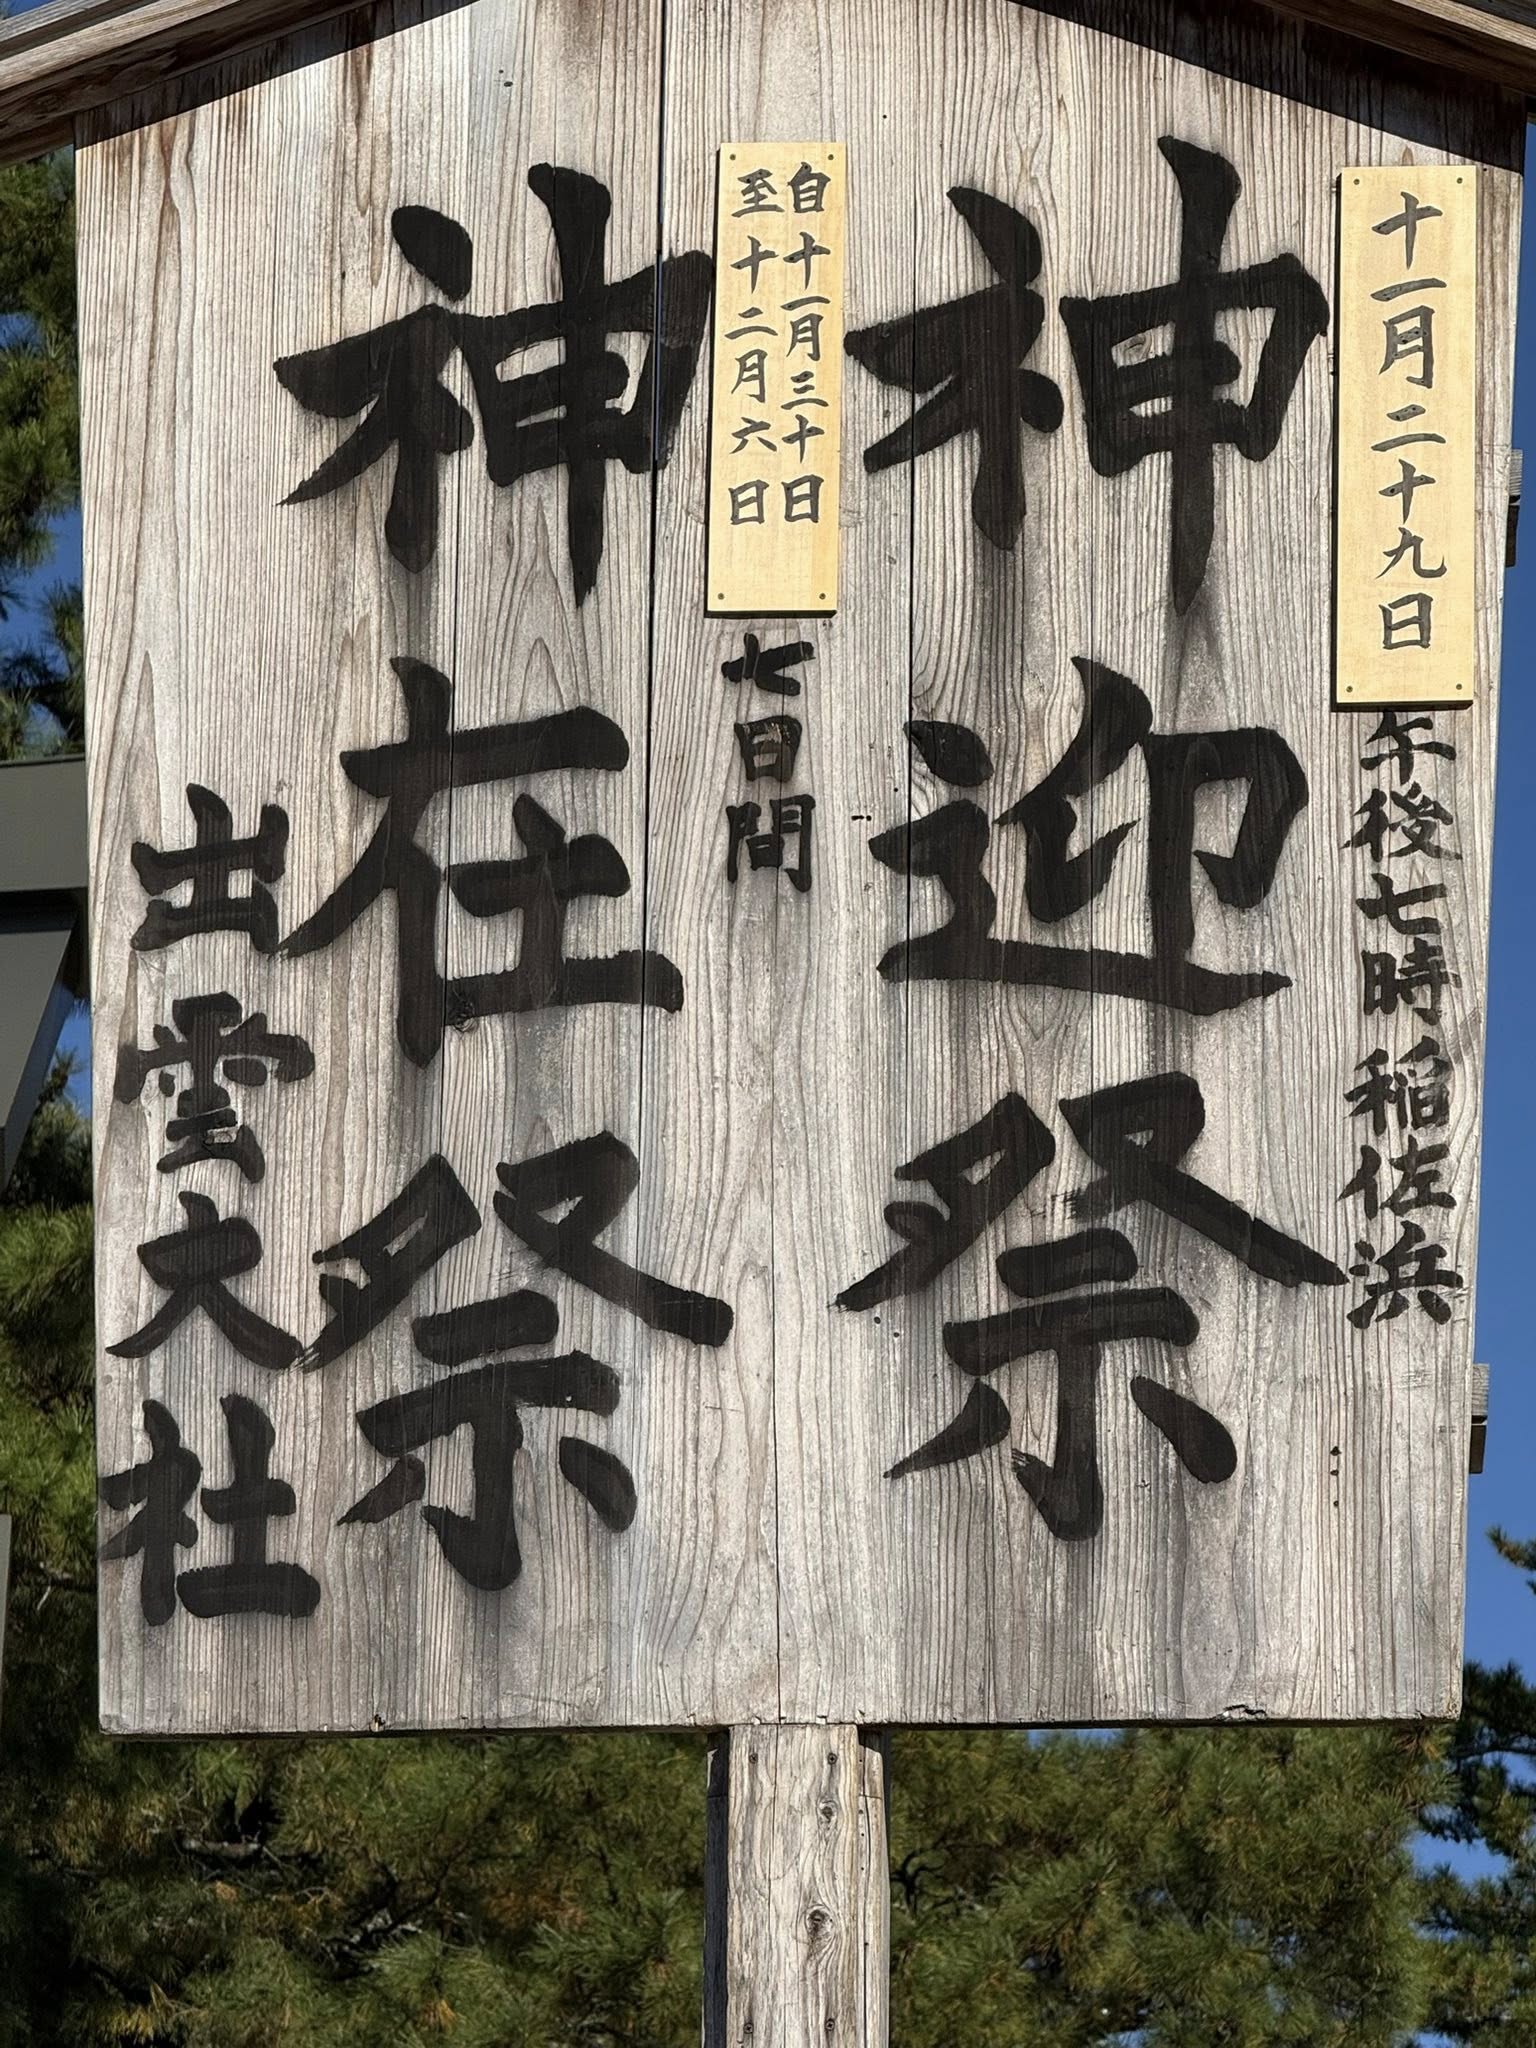 十一月二十九日
午後七時 稲佐浜
神迎祭
自 十一月三十日
至 十二月六日
七日間
神在祭
出雲大社